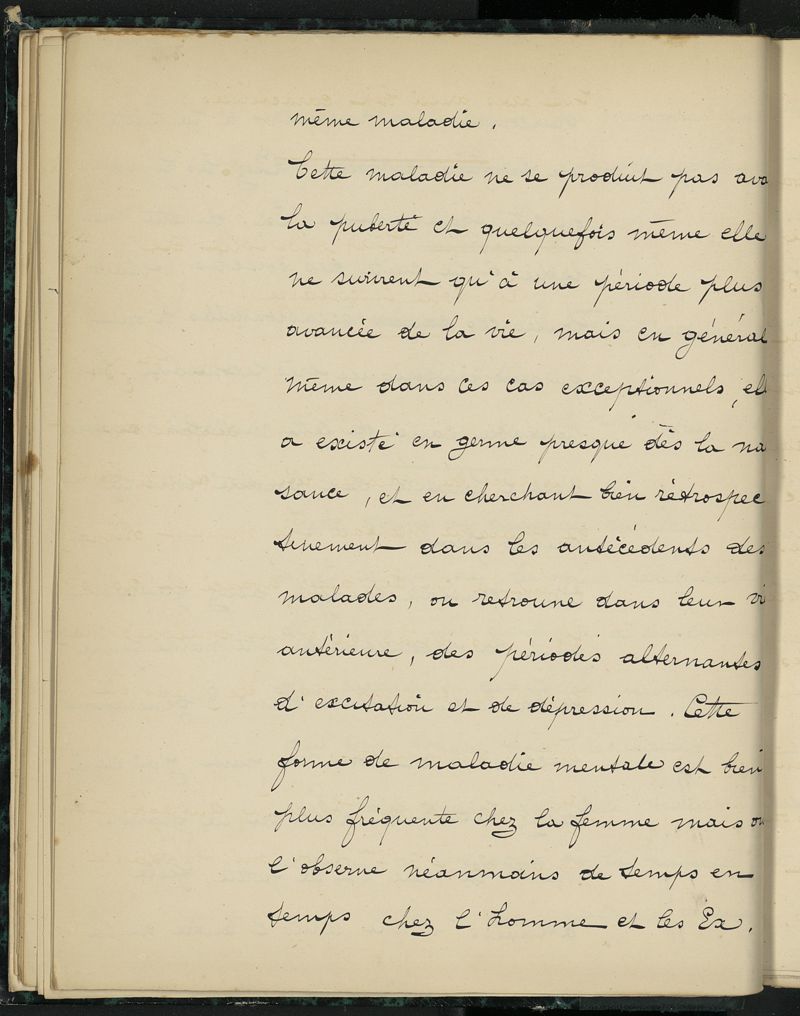 même maladie.
Cette maladie ne se produit pas ava
la puberté et quelquefois même elle
ne survient qu'à une période plus
avancée de la vie, mais en général
même dans ces cas exceptionnels, ell
a existé en germe presque dès la na
sance, et en cherchant bien rétrospec
tivement dans les antécédents des
malades, on retrouve dans leur vi
antérieure, des périodes alternantes
d'excitation et de dépression. Cette
forme de maladie mentale est bien
plus fréquente chez la femme mais on
l'observe néanmoins de temps en
temps chez l'homme et les Ex.